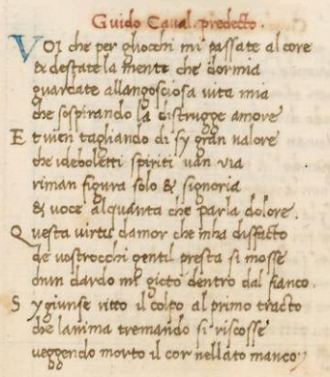 Guido Caual. predecto.
VOI che per gliocchi mi passate al core
& destate la mente che dormia
guardate allangosciosa uita mia
che sospirando la distrugge amore
E t uien tagliando di sy gran ualore
che ideboletti spiriti uan uia
riman figura solo & signoria
& uoce alquanta che parla dolore.
Q uesta uirtu damor che mha disfacto
de uostrocchi gentil presta si mosse
dun dardo mi gicto dentro dal fianco.
S y giunse ritto il colpo al primo tracto
che lanima tremando si riscosse
ueggendo morto il cor nellato manco